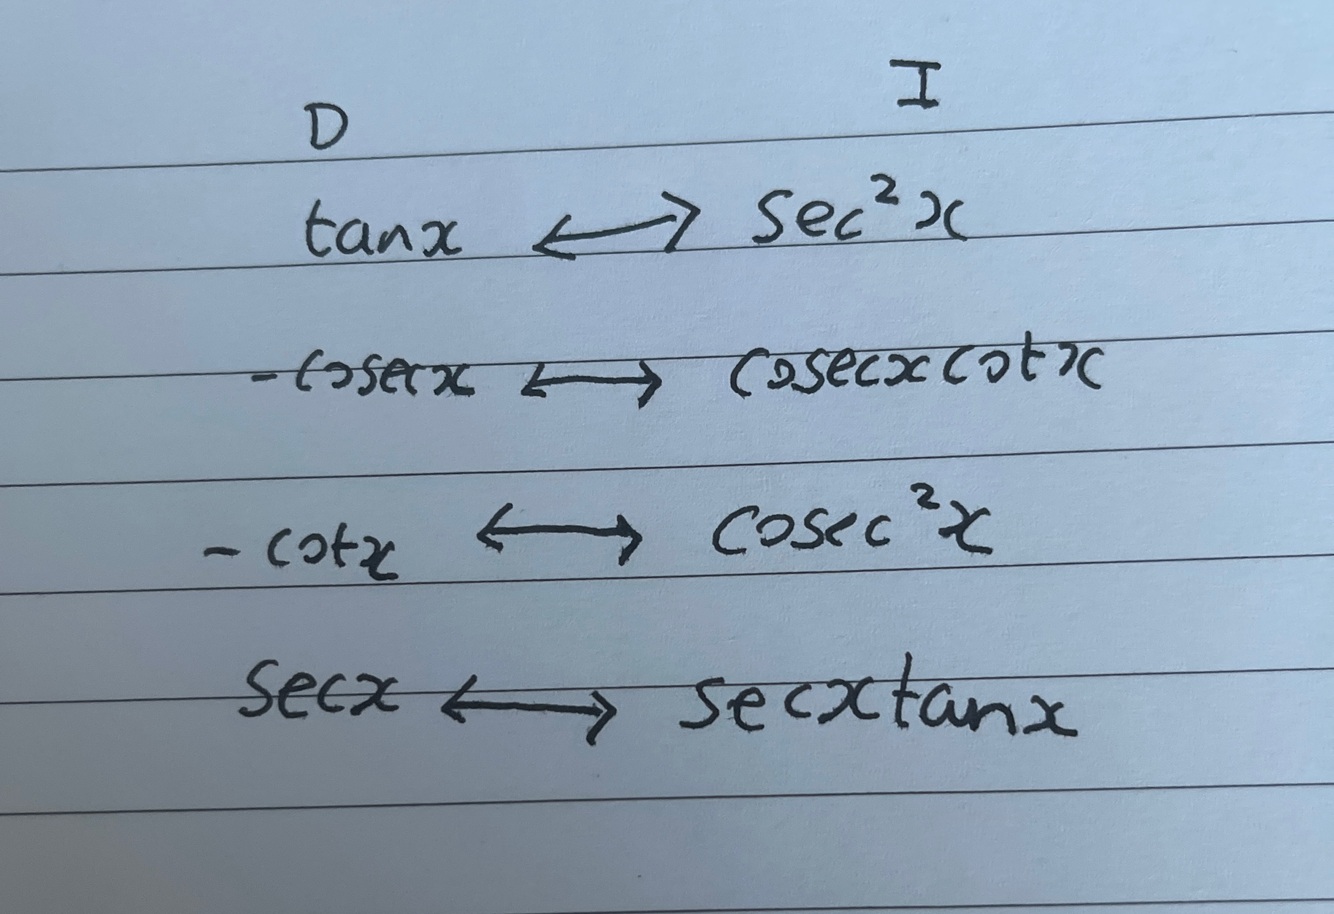 D I
tanx ↔ sec²x
-cosecx ↔ cosecxcotx
- cotx ↔ cosec²x
secx ↔ secxtanx